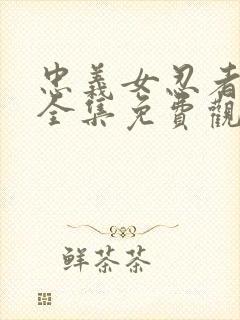 忠義女忍者
全集免費觀
鮮茶茶